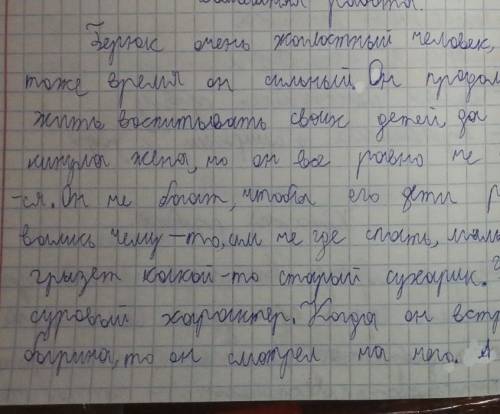 Домашняя работа.
Берюк очень жалостный человек,
тоже время он сильный. Он продол
жить воспитывать своих детей, да
кинула жена, но он все равно не
-ся. Он не богат, чтобы его дети р
вались чему-то, им не где спать, маль
грызет какой-то старый сухарик.
суровый характер. Когда он встр
барина, то он смотрел на него. А